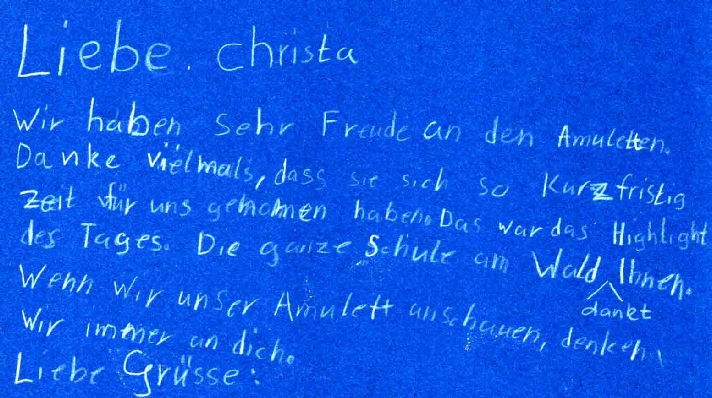 Liebe. christa
Wir haben sehr Freude an den Amuletten.
Danke vielmals, dass sie sich so kurzfristig
Zeit für uns genomen haben. Das war das Highlight
des Tages. Die ganze Schule am Wald dankt Ihnen.
Wenn wir unser Amulett anschauen, denken
wir immer an dich.
Liebe Grüsse: